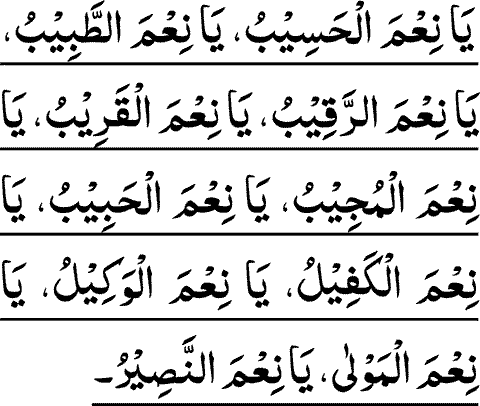 يَا نِعْمَ الْحَسِيْبُ، يَا نِعْمَ الطَّبِيْبُ،
يَا نِعْمَ الرَّقِيْبُ، يَا نِعْمَ الْقَرِيْبُ، يَا
نِعْمَ الْمُجِيْبُ، يَا نِعْمَ الْحَبِيْبُ، يَا
نِعْمَ الْكَفِيْلُ، يَا نِعْمَ الْوَكِيْلُ، يَا
نِعْمَ الْمَوْلٰى، يَا نِعْمَ النَّصِيْرُ۔